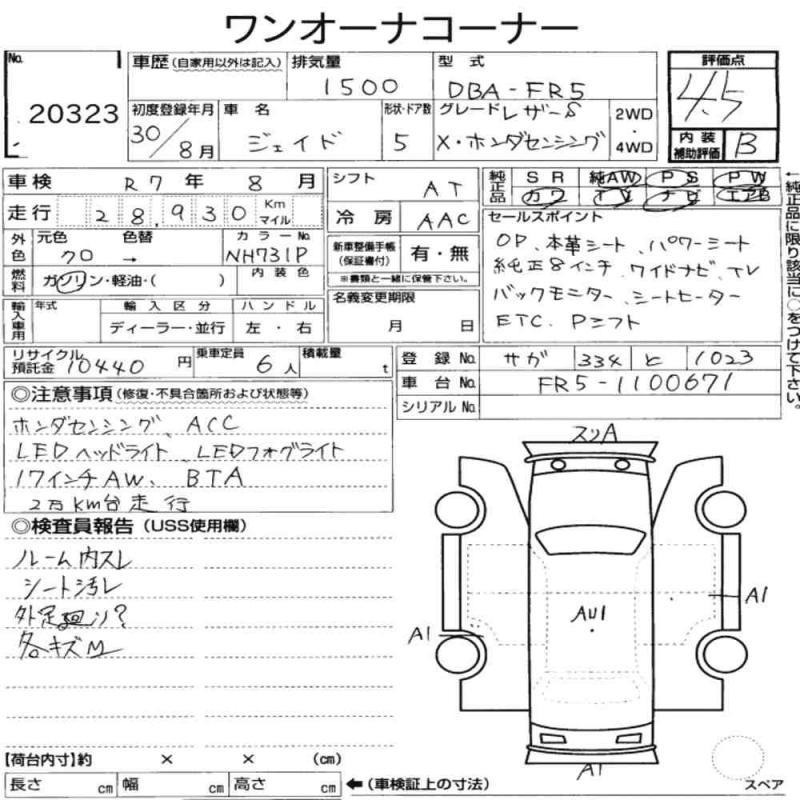 ワンオーナコーナー
No. 20323
車歴 (自家用以外は記入) 排気量 1500 型式 DBA-FR5
初度登録年月 30/8月 車名 ジェイド 形状・ドア数 5 グレード レザーS X・ホンダセンシング 2WD・4WD
評価点 4.5
内装補助評価 B
車検 R7年8月 シフト AT
純正品 SR 純AW PS PW
カワ TV ナビ エアB
走行 28,930 Km マイル 冷房 AAC
外色 元色 クロ 色替 → カラーNo. NH731P
燃料 ガソリン・軽油・( ) 内装色
新車整備手帳(保証書付) 有・無
※書類と一緒に保管下さい。
セールスポイント
OP、本革シート、パワーシート
純正8インチ、ワイドナビ、TV
バックモニター、シートヒーター
ETC、Pシフト
←純正品に限り該当に○をつけて下さい。
輸入車用 年式 輸入区分 ハンドル
ディーラー・並行 左・右
名義変更期限
月 日
リサイクル預託金 10440円 乗車定員 6人 積載量 t
登録No. サガ 334 と 1023
車台No. FR5-1100671
シリアルNo.
◎注意事項(修復・不具合箇所および状態等)
ホンダセンシング、ACC
LEDヘッドライト、LEDフォグライト
17インチAW、BTA
2万Km台走行
◎検査員報告(USS使用欄)
ルーム内スレ
シート汚レ
外足廻り?
各キズ
スリA
A1
AU1
A1
A1
スペア
【荷台内寸】約 × × (cm)
長さ cm 幅 cm 高さ cm ←(車検証上の寸法)